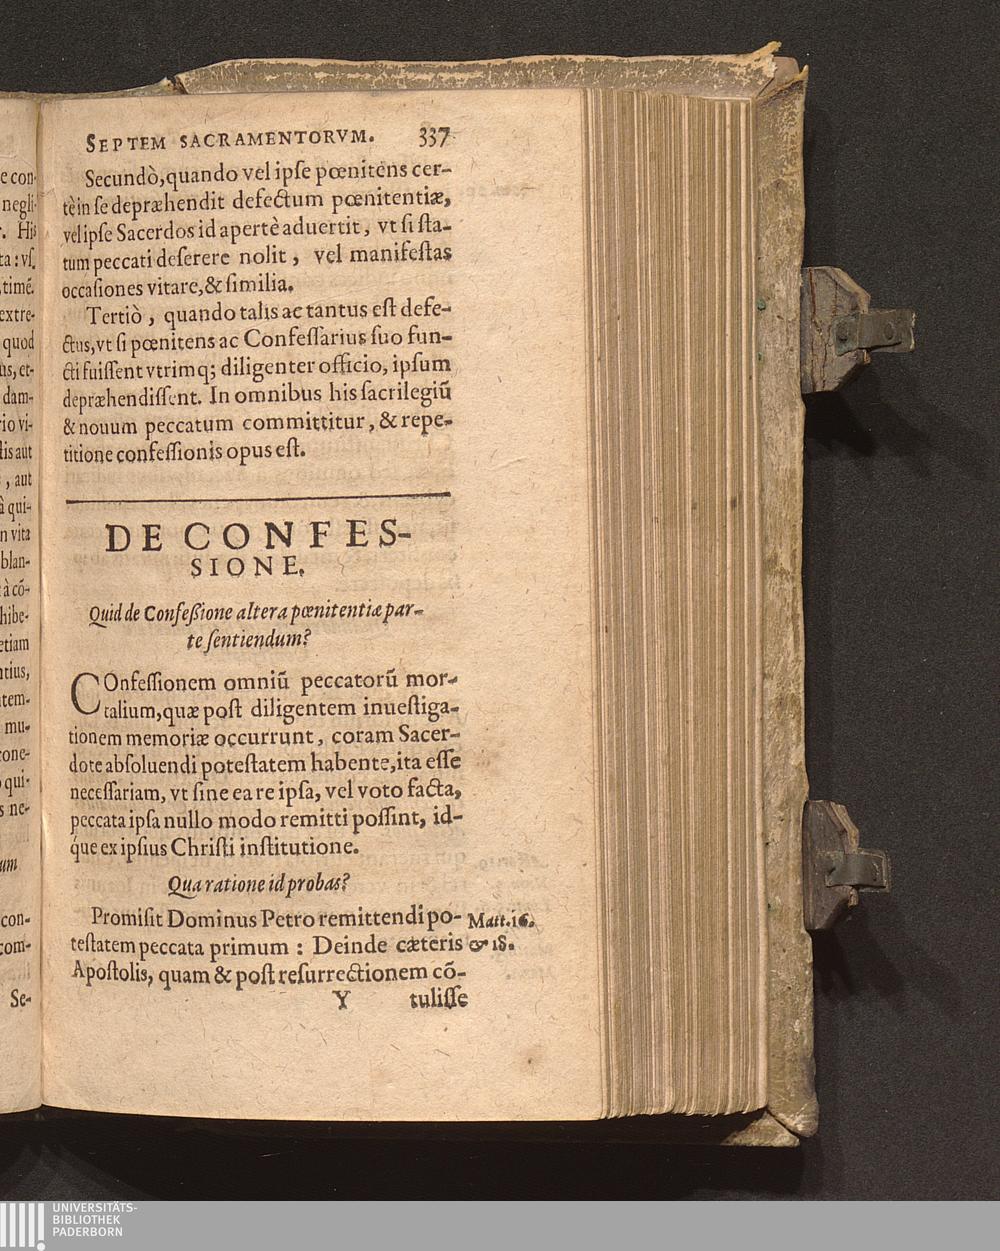 SEPTEM SACRAMENTORVM. 337
Secundò, quando vel ipſe pœnitens cer-
tè in ſe depræhendit defectum pœnitentiæ,
vel ipſe Sacerdos id apertè aduertit, vt ſi ſta-
tum peccati deſerere nolit, vel manifeſtas
occaſiones vitare, & ſimilia.
Tertiò, quando talis ac tantus eſt defe-
ctus, vt ſi pœnitens ac Confeſſarius ſuo fun-
cti fuiſſent vtrimq; diligenter officio, ipſum
depræhendiſſent. In omnibus his ſacrilegiũ
& nouum peccatum committitur, & repe-
titione confeſſionis opus eſt.
DE CONFES-
SIONE.
Quid de Confeßione altera pœnitentiæ par-
te ſentiendum?
COnfeſſionem omniũ peccatorũ mor-
talium, quæ poſt diligentem inueſtiga-
tionem memoriæ occurrunt, coram Sacer-
dote abſoluendi poteſtatem habente, ita eſſe
neceſſariam, vt ſine ea re ipſa, vel voto facta,
peccata ipſa nullo modo remitti poſſint, id-
que ex ipſius Chriſti inſtitutione.
Qua ratione id probas?
Promiſit Dominus Petro remittendi po-
teſtatem peccata primum : Deinde cæteris
Apoſtolis, quam & poſt reſurrectionem cõ-
Matt. 16.
& 18.
Y tuliſſe
e con-
negli-
. His
ta : vſ.
timẽ.
extre-
quod
us, et-
dam-
rio vi-
lis aut
, aut
à qui-
n vita
blan-
à cõ-
hibe-
etiam
ntius,
tem-
mu-
one-
qui-
s ne-
um
con-
com-
Se-
UNIVERSITÄTS-
BIBLIOTHEK
PADERBORN